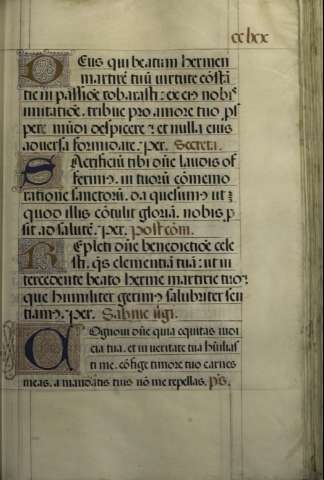 cclxx
Deus qui beatum hermen
martirē tuū virtute cōstā
tie in passiōe roborasti: ex eiꝰ nobis
imitatiōe, tribue pro amore tuo ꝓs
pera mūdi despicere ⁊ et nulla eius
aduersa formidare. per. Secreta.
Sacrificiū tibi dn̄e laudis of
ferimꝰ in tuorū cōmemo
ratione sanctorū. da quesumꝰ ut:
quod illis cōtulit gloriā. nobis ꝓ
sit ad salutē. per. postcom.
Repleti dn̄e benedictiōe cele
sti. q̄s clementiā tuā: ut in
tercedente beato herme martire tuo:
que humiliter gerimꝰ salubriter sen
tiamꝰ. per. Sabine
Cognoui dn̄e quia equitas iudi
cia tua. et in veritate tua humilias
ti me. cōfige timore tuo carnes
meas. a mandatis tuis nō me repellas. ps.